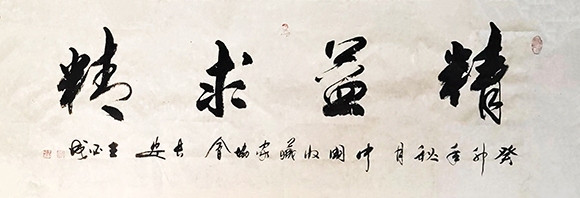 精益求精
癸卯年秋月中國收藏家協會長安王